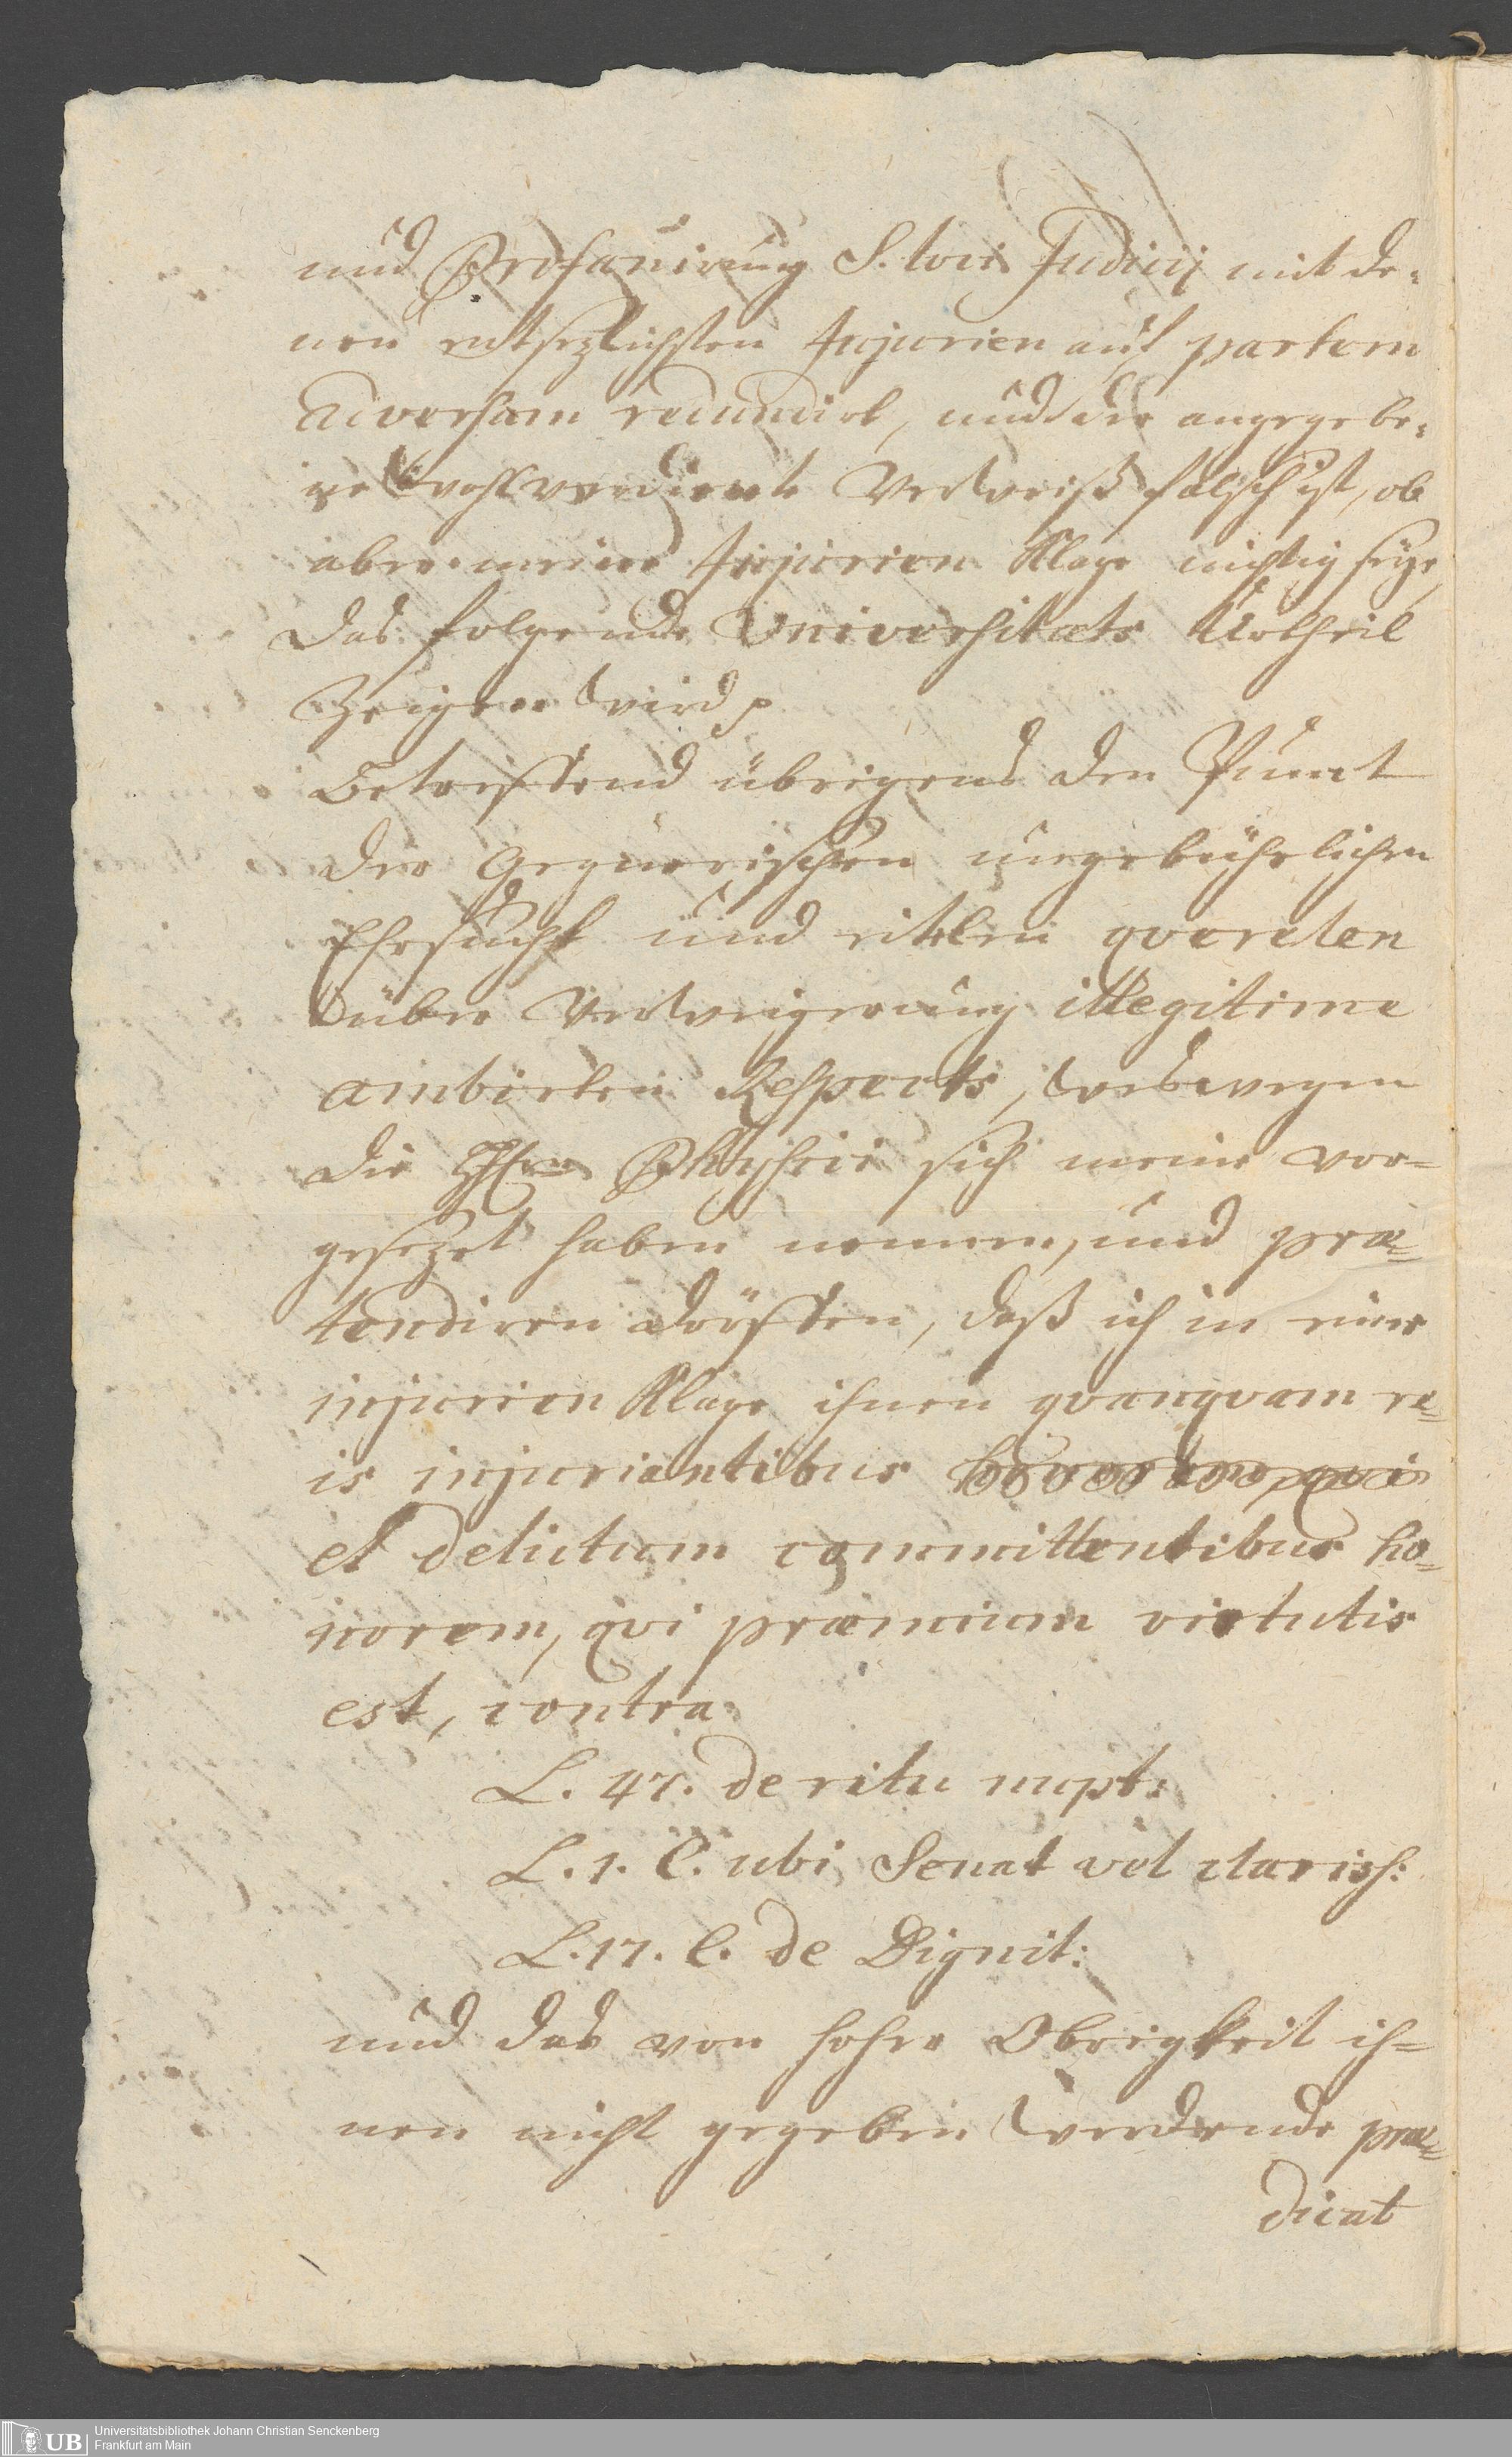 und Profanirung S. loci Judicij mit de-
nen entsezlichsten Injurien auf partem
adversam recumirt, und der angegebe-
ne wohlverdiente Verweiß falsch ist, ob
aber meine Injurien Klage nichtig seye,
das folgende Universitaets Urtheil
Zeigen wird p
Betreffend übrigens den Punct
der Gegnerischen ungebührlichen
Ehrsucht und eitelen qverelen
über Verweigerung illegitime
ambirten Respects, weswegen
die HHrn Physici sich meine vor-
gesezet haben nennen, und præ-
tendiren dörffen, daß ich in einer
injurien Klage ihnen qvanqvam re-
is injuriantibus
et delictum committentibus ho-
norem, qvi præmium virtutis
est, contra
L. 47. de ritu nupt:
L. 1. C. ubi Senat vel clariss:
L. 17. C. de Dignit:
und das von hoher Obrigkeit ih-
nen nicht gegeben werdende præ-
dicat
Universitätsbibliothek Johann Christian Senckenberg
UB Frankfurt am Main